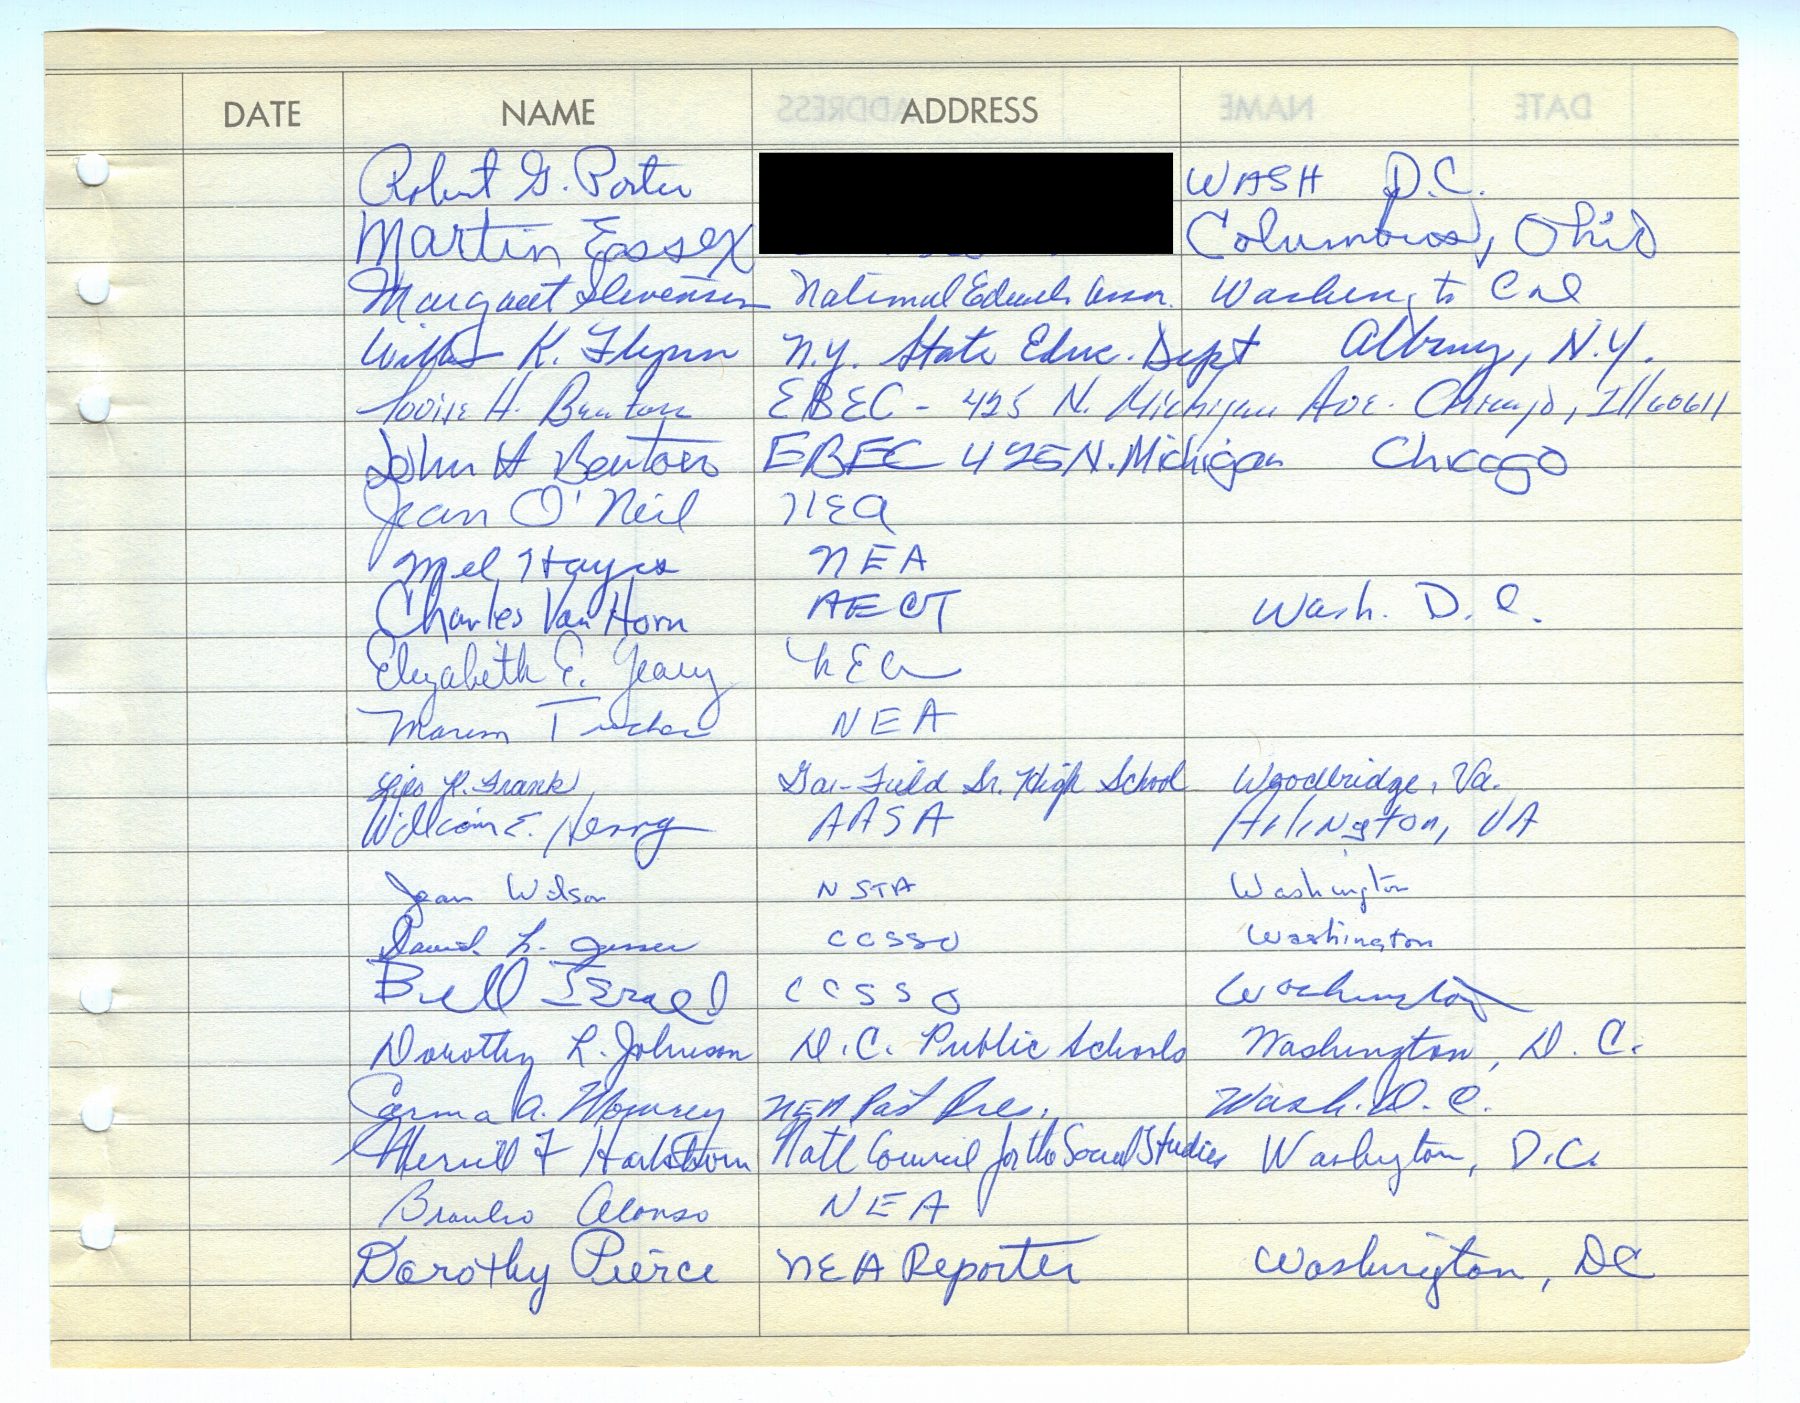 DATE NAME ADDRESS
Robert G. Porter WASH D.C.
Martin Essex Columbus, Ohio
Margaret Stevenson National Educ Assn. Washington
K. Flynn N.Y. State Educ. Dept Albany, N.Y.
Louise H. Benton EBEC - 425 N. Michigan Ave. Chicago, Ill 60611
John H Benton EBEC 425 N. Michigan Chicago
Jean O'Neil NEA
Mel Hayes NEA
Charles Van Horn AECT Wash. D.C.
Elizabeth E. Geary NEA
NEA
R. Frank Gar-Field Sr. High School Woodbridge, Va.
William E. Henry AASA Arlington, VA
Jean Wilson NSTA Washington
David L. Jesser CCSSO Washington
Bill Israel CCSSO Washington
Dorothy L. Johnson D.C. Public Schools Washington, D.C.
A. NEA Past Pres. Wash. D.C.
Merrill F Hartshorn Natl Council for the Social Studies Washington, D.C.
Braulio Alonso NEA
Dorothy Pierce NEA Reporter Washington, DC